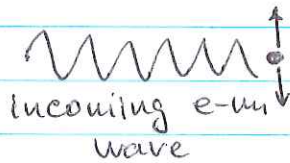 incoming e-m
wave